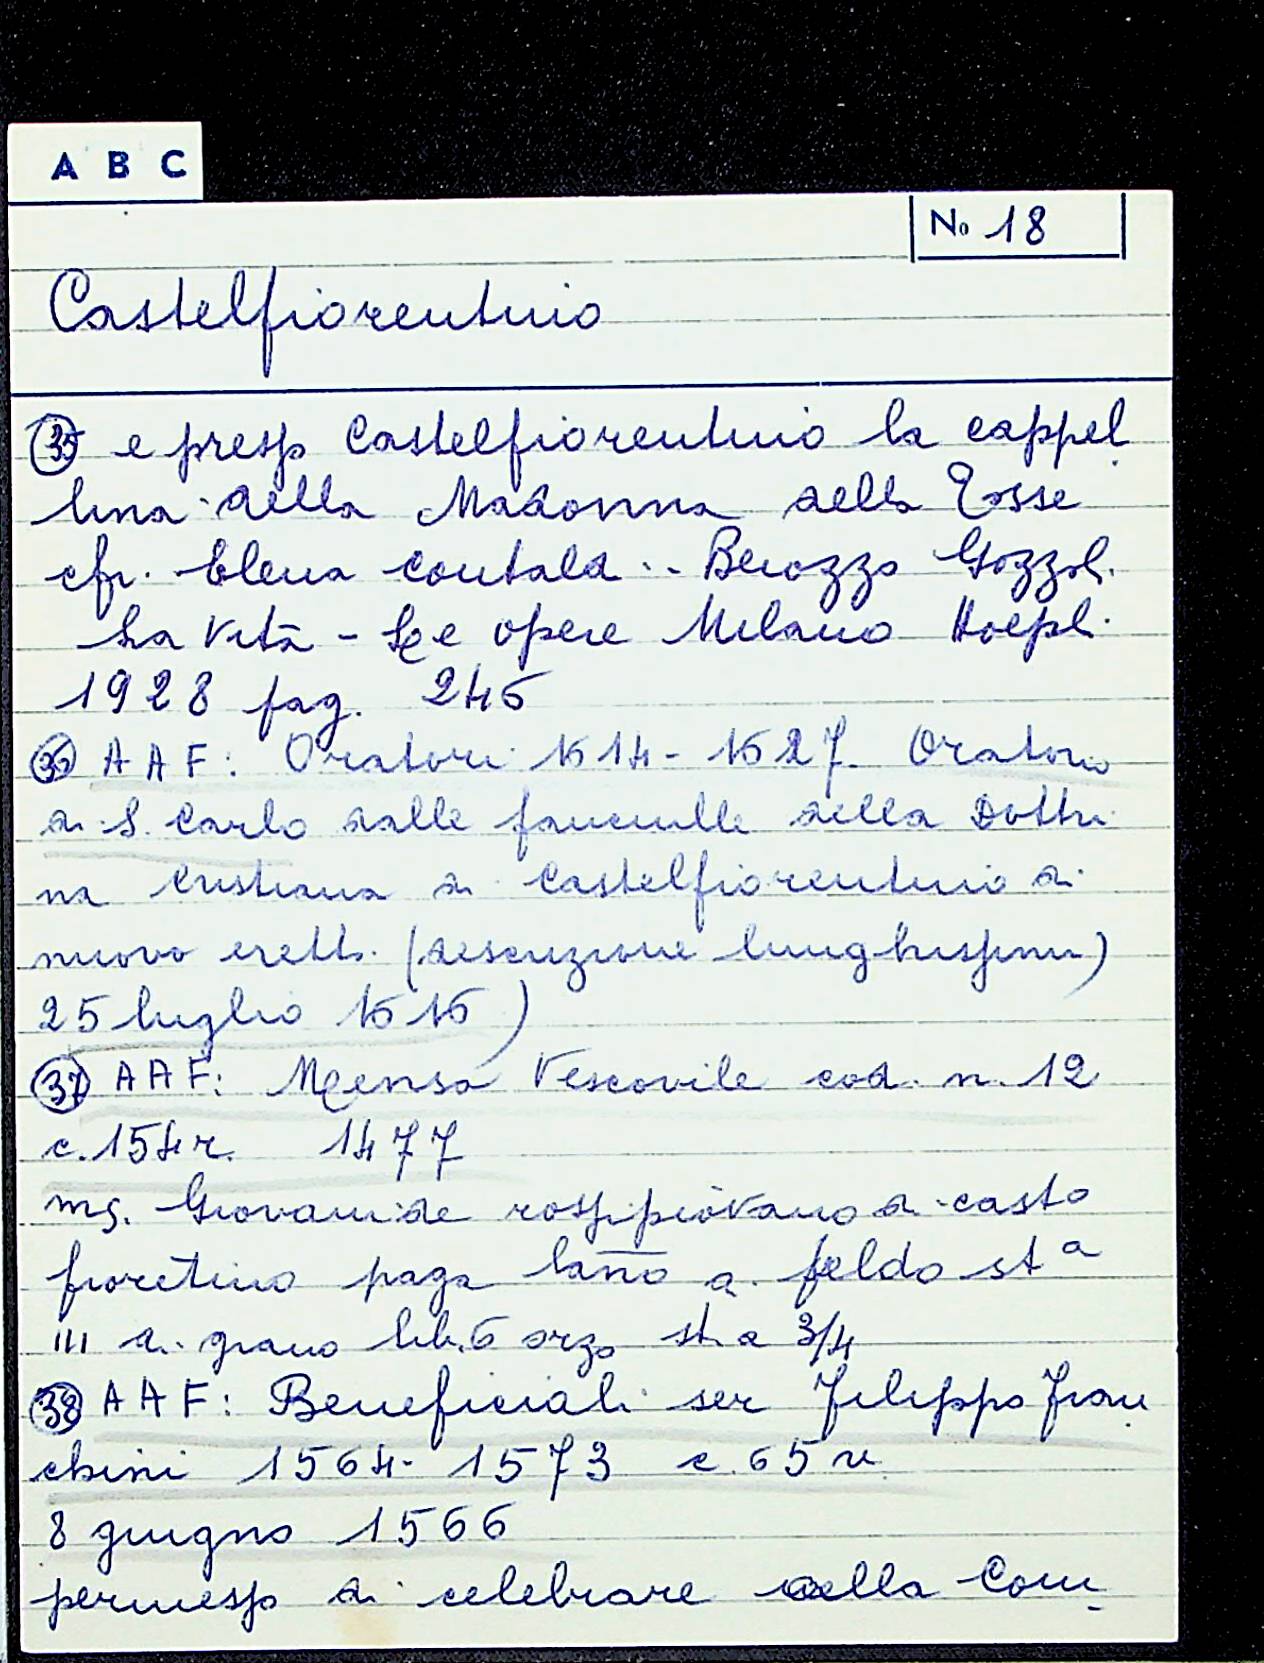 A B C
No 18
Castelfiorentino
35 e presso Castelfiorentino la cappel
lina della Madonna della Tosse
cfr. Elena Contaldi - Benozzo Gozzoli
La vita - Le opere Milano Hoepli
1928 pag. 246
36 AAF: Oratori 1614-1627. Oratorio
di S. Carlo dalle fanciulle della Dottri
na cristiana di Castelfiorentino di
nuovo eretto. (descrizione lunghissima)
25 luglio 1616)
37 AAF: Mensa Vescovile cod. n. 12
c. 154r. 1477
ms. Giovanni de rossi piovano di casto
fioretino paga lano di feldo st a
III di grano lib. 6 orzo sta 3/4
38 AAF: Beneficiali ser Filippo Fran
chini 1564-1573 c. 65 v
8 giugno 1566
permesso di celebrare nella Com